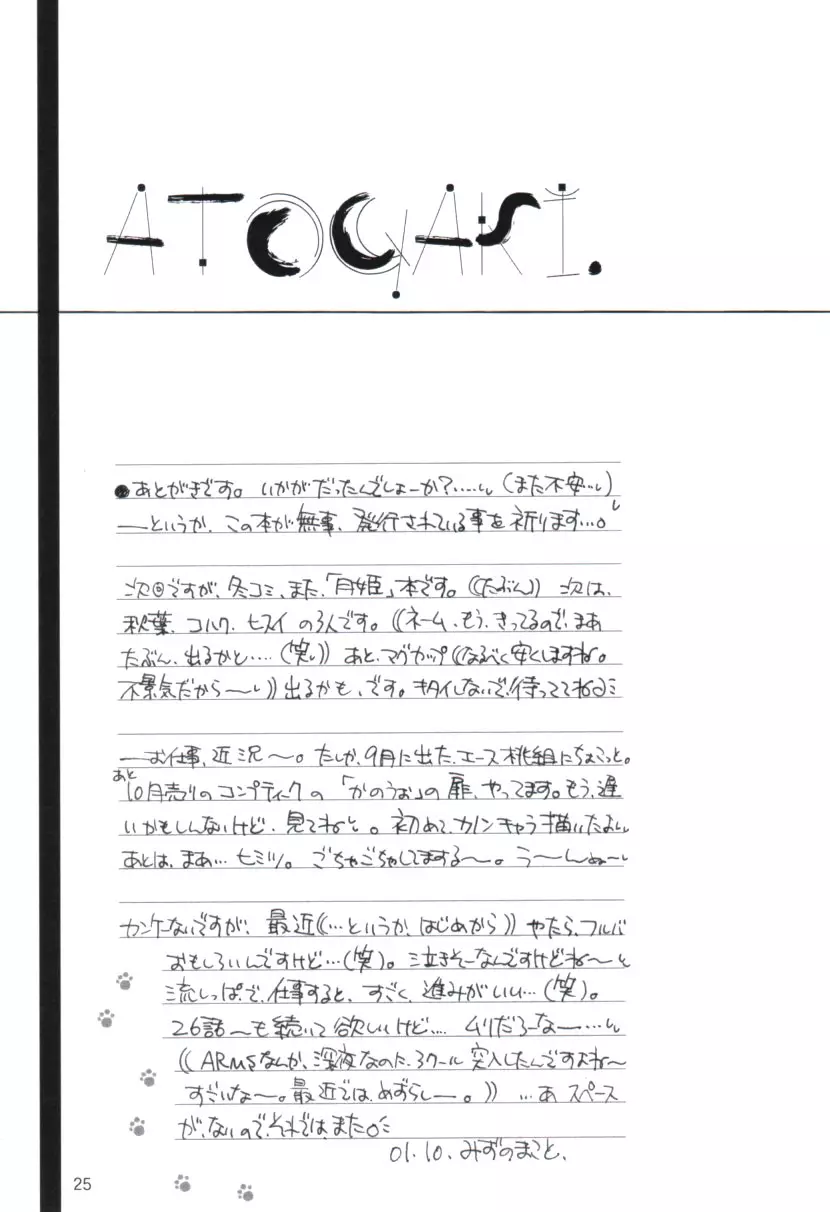 ATOGAKI.
●あとがきです。いかがだったんでしょーか?……(また不安…)
――というか、この本が無事、発行されている事を祈ります…。
次回ですが、冬コミ、また、「月姫」本です。((たぶん)) 次は、
秋葉、コハク、ヒスイの3人です。((ネーム、もう、きってるので、まあ
たぶん、出るかと……(笑)) あと、マグカップ((なるべく安くしますね。
不景気だから〜))出るかも、です。キタイしないで、待っててね
――お仕事、近況〜。たしか、9月に出た、エース桃組にちょこっと。
あと
10月売りのコンプティークの「かのうぉ」の扉、やってます。もう、遅
いかもしんないけど、見てねと。初めて、カノンキャラ描いたよ
あとは、まあ…ヒミツ。ごちゃごちゃしてまする〜。う〜んぬ〜
カンケーないですが、最近((…というか、はじめから))やたら、フルバ
おもしろいんですけど…(笑)。泣きそーなんですけどね〜と
流しっぱで、仕事すると、すごく、進みがいい…(笑)。
26話〜も続いて欲しいけど…、ムリだろーなー……
((ARMSなんか、深夜なのに、3クール突入したんですよね〜
すごいな〜。最近では、めずらしー。)) …あ スペース
が、ないので、それでは、また。
01.10. みずのまこと、
25